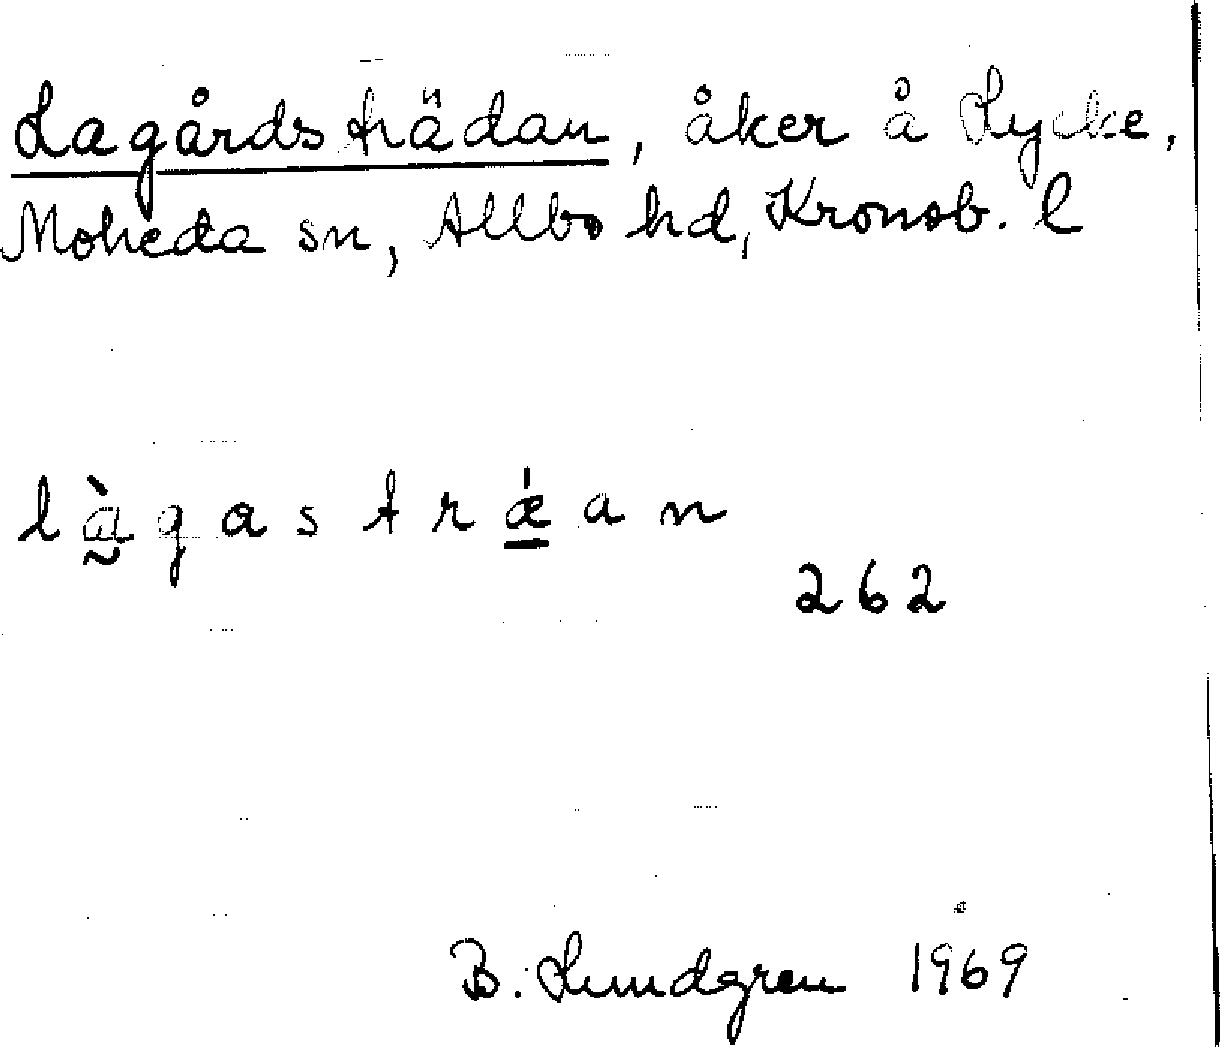 Lagårdsträdan, åker å Lycke,
Moheda sn, Allbo hd, Kronob. l
làgastrǽan
262
B. Lundgren 1969